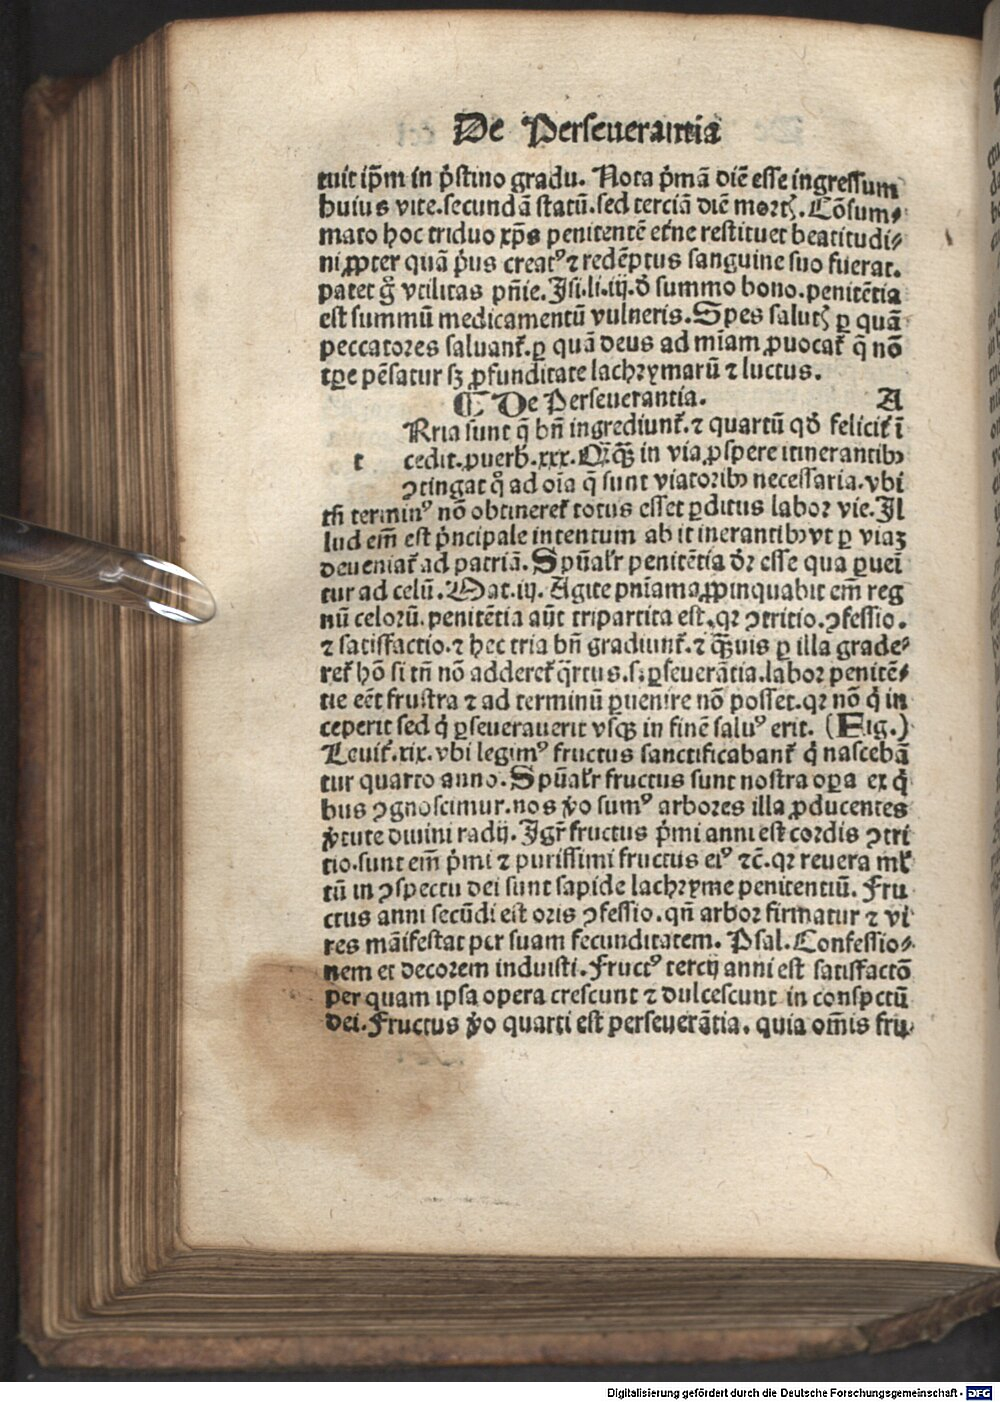 De Perseuerantia
tuit ip̄m in p̍stino gradu. Nota p̍mā diē esse ingressum
huius vite. secundā statū. sed terciā diē mortꝭ. Cōsum⸗
mato hoc triduo xp̄s penitentē etne restituet beatitudi⸗
ni ꝓpter quā p̍us creatꝰ ⁊ redēptus sanguine suo fuerat.
patet g̊ vtilitas pn̄ie. Isi. li. iij. ď summo bono. penitētia
est summū medicamentū vulneris. Spes salutꝭ ꝑ quā
peccatores saluant̃. ꝑ quā deus ad mīam ꝓuocat̃ q̄ nō
tꝑe pēsatur sꝫ ꝓfunditate lachrymarū ⁊ luctus.
¶ De Perseuerantia. A
Rria sunt q̄ bn̄ ingrediunt̃. ⁊ quartū qď felicit̃ ī
t cedit. ꝓuerb. xxx. Q̄q̄ꝫ in via ꝓspere itinerantibꝰ
ꝯtingat q̊ ad oīa q̄ sunt viatoribꝰ necessaria. vbi
tn̄ terminꝰ nō obtineret̃ totus esset ꝑditus labor vie. Il
lud em̄ est p̍ncipale intentum ab itinerantibꝰ vt ꝑ viaꝫ
deueniat̃ ad patriā. Spūalr̃ penitētia dr̃ esse qua ꝑueī
tur ad celū. Mat. iij. Agite pnīam aꝓpinquabit em̄ reg
nū celorū. penitētia aūt tripartita est. qꝛ ꝯtritio. ꝯfessio.
⁊ satisfactio. ⁊ hec tria bn̄ gradiunt̃. ⁊ q̄ꝫuis ꝑ illa grade⸗
ret̃ hō si tn̄ nō adderet̃ q̄rtus. s. ꝑseuerātia. labor penitē⸗
tie eēt frustra ⁊ ad terminū ꝑuenire nō posset. qꝛ nō q̍ in
ceperit sed q̍ ꝑseuerauerit vsqꝫ in finē saluꝰ erit. (Fig.)
Leuit̃. xix. vbi legimꝰ fructus sanctificabant̃ q̍ nascebā
tur quarto anno. Spūalr̃ fructus sunt nostra oꝑa ex q̍
bus ꝯgnoscimur. nos v̊o sumꝰ arbores illa ꝓducentes
v̍tute diuini radij. Igr̃ fructus p̍mi anni est cordis ꝯtri
tio. sunt em̄ p̍mi ⁊ purissimi fructus eiꝰ ⁊c̄. qꝛ reuera ml̃
tū in ꝯspectu dei sunt sapide lachryme penitentiū. Fru
ctus anni secūdi est oris ꝯfessio. qn̄ arbor firmatur ⁊ vi
res māifestat per suam fecunditatem. Psal. Confessio⸗
nem et decorem induisti. Fructꝰ tercij anni est satisfactō
per quam ipsa opera crescunt ⁊ dulcescunt in conspctū
dei. Fructus v̊o quarti est perseuerātia. quia om̄is fru⸗
Digitalisierung gefördert durch die Deutsche Forschungsgemeinschaft - DFG